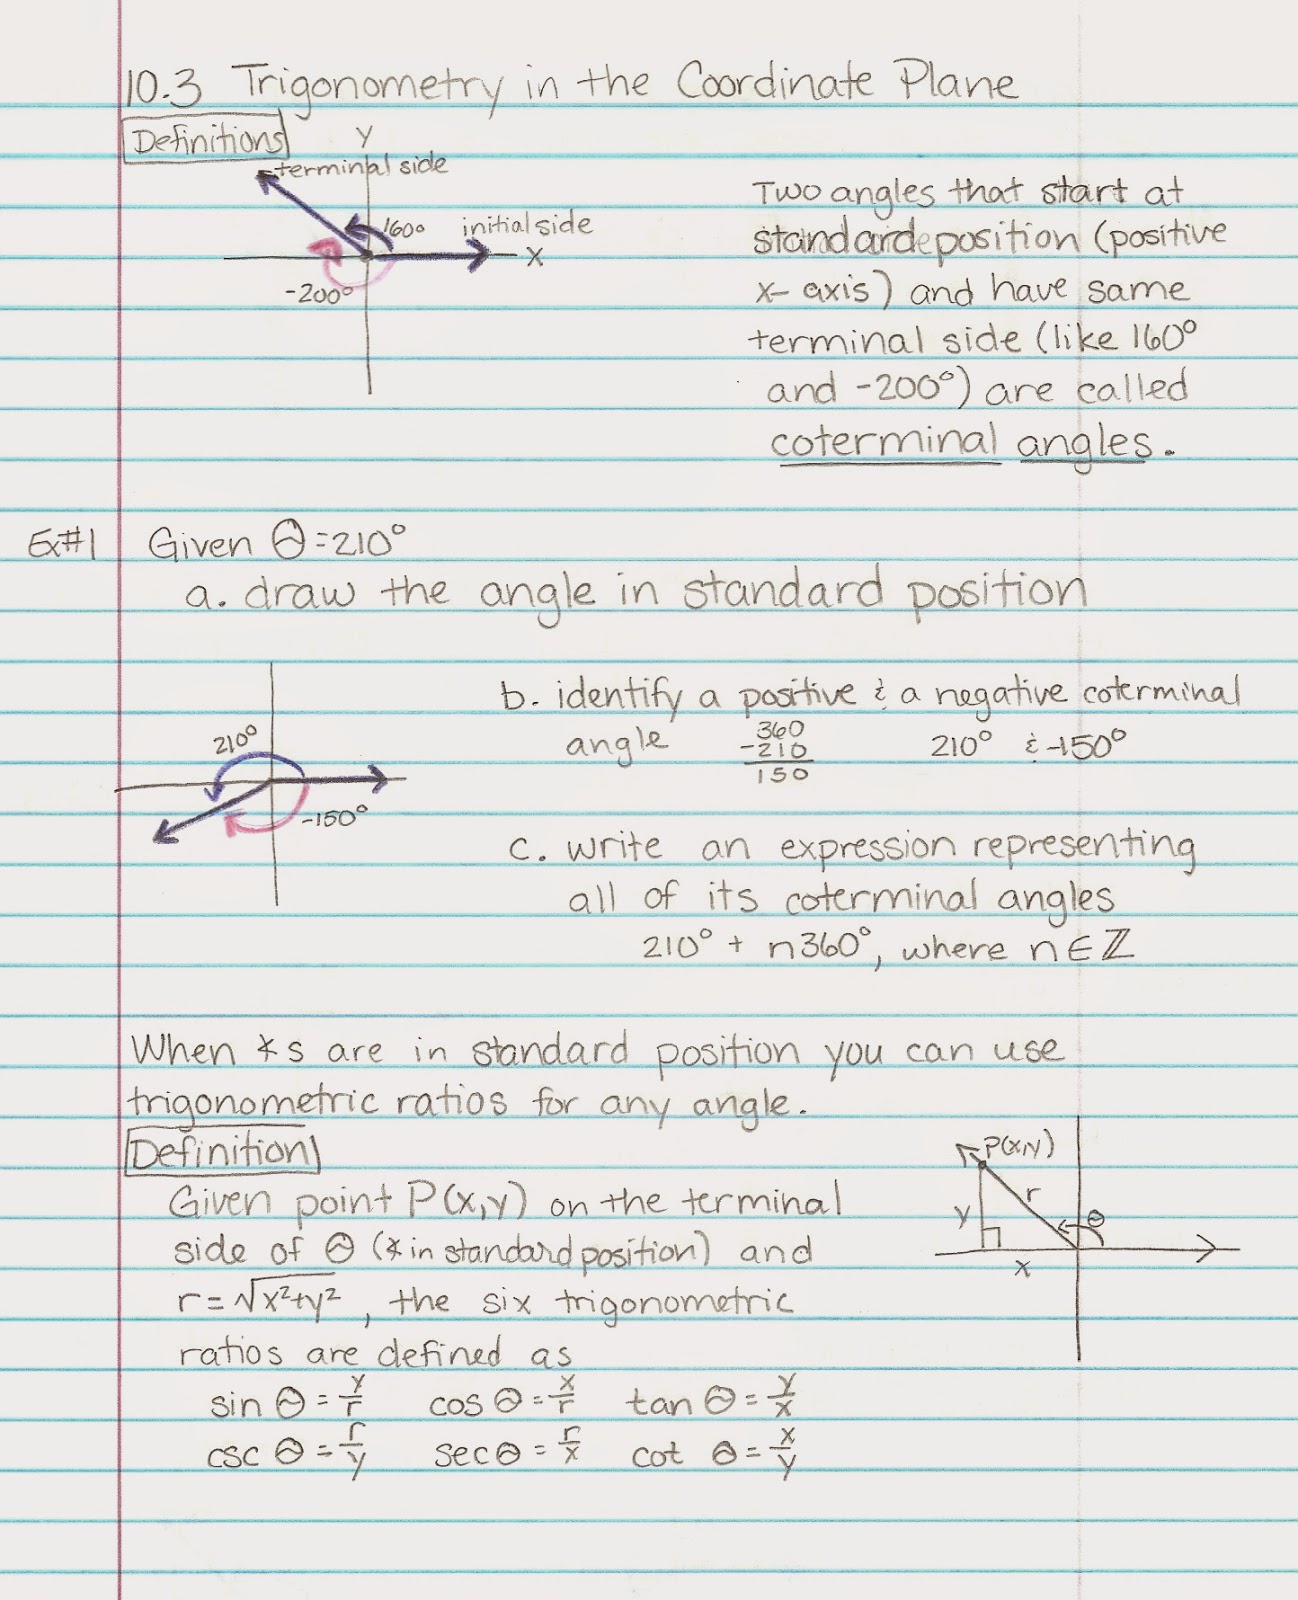 10.3 Trigonometry in the Coordinate Plane
Definitions
Y
terminal side
160°
initial side
X
-200°
Two angles that start at
standard position (positive
x-axis) and have same
terminal side (like 160°
and -200°) are called
coterminal angles.
Ex#1 Given θ=210°
a. draw the angle in standard position
210°
-150°
b. identify a positive & a negative coterminal
angle 360 210° & -150°
-210
150
c. write an expression representing
all of its coterminal angles
210° + n360°, where n∈ℤ
When ∡s are in standard position you can use
trigonometric ratios for any angle.
Definition
Given point P(x,y) on the terminal
side of θ (∡ in standard position) and
r=√x²+y², the six trigonometric
ratios are defined as
sin θ = y/r cos θ = x/r tan θ = y/x
csc θ = r/y sec θ = r/x cot θ = x/y
P(x,y)
r
y
θ
x